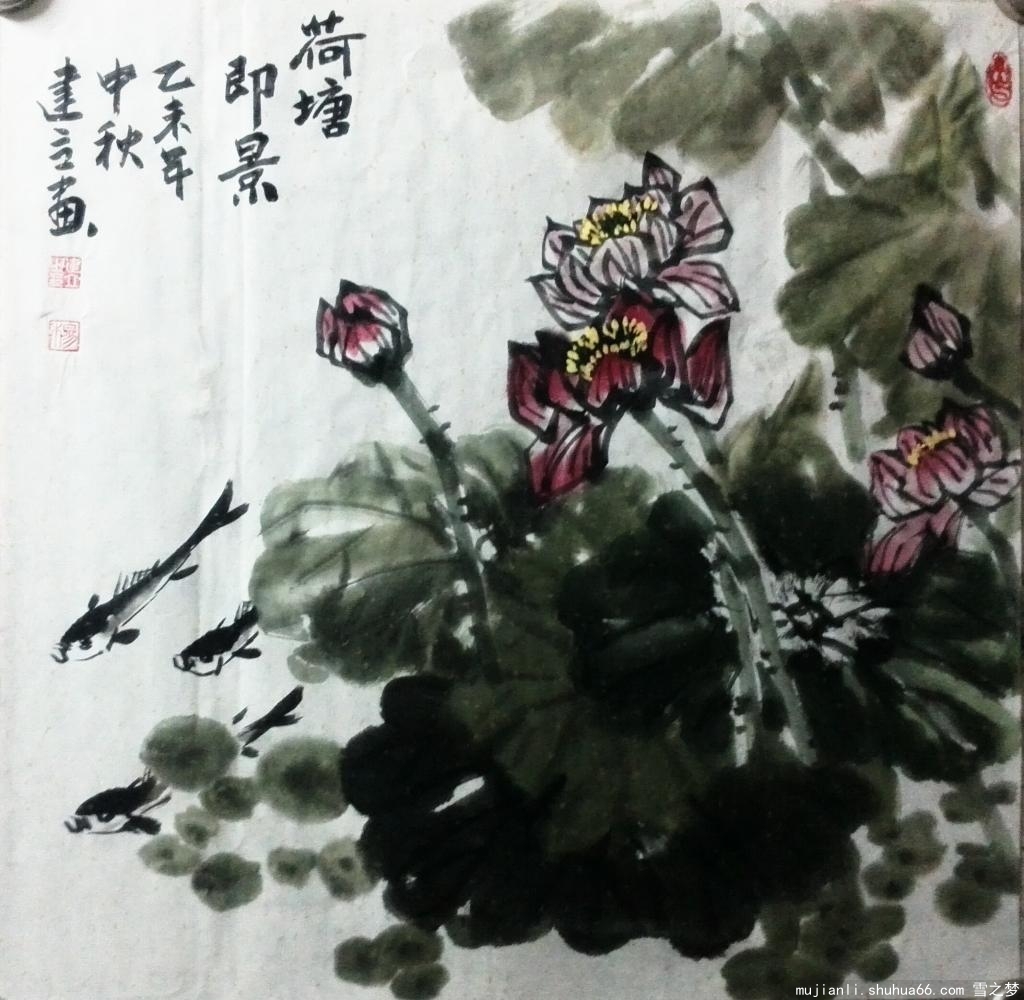 荷塘
即景
乙未年
中秋
建立画
mujianli.shuhua66.com 雪之梦